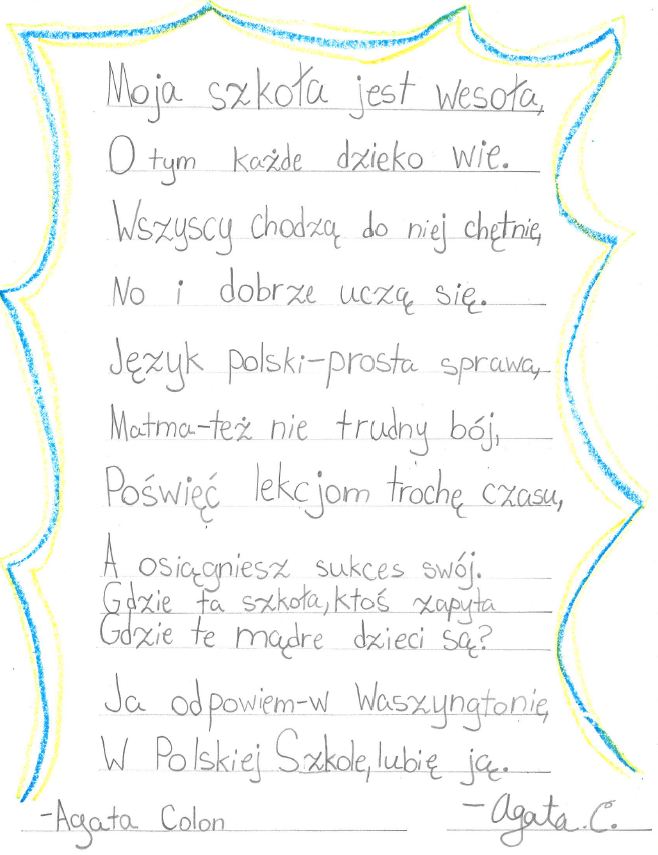 Moja szkoła jest wesoła,
O tym każde dzieko wie.
Wszyscy chodzą do niej chętnie,
No i dobrze uczą się.
Język polski-prosta sprawa,
Matma-też nie trudny bój,
Poświęć lekcjom trochę czasu,
A osiągniesz sukces swój.
Gdzie ta szkoła, ktoś zapyta
Gdzie te mądre dzieci są?
Ja odpowiem-w Waszyngtonie,
W Polskiej Szkole, lubię ją.
-Agata Colon
-Agata C.